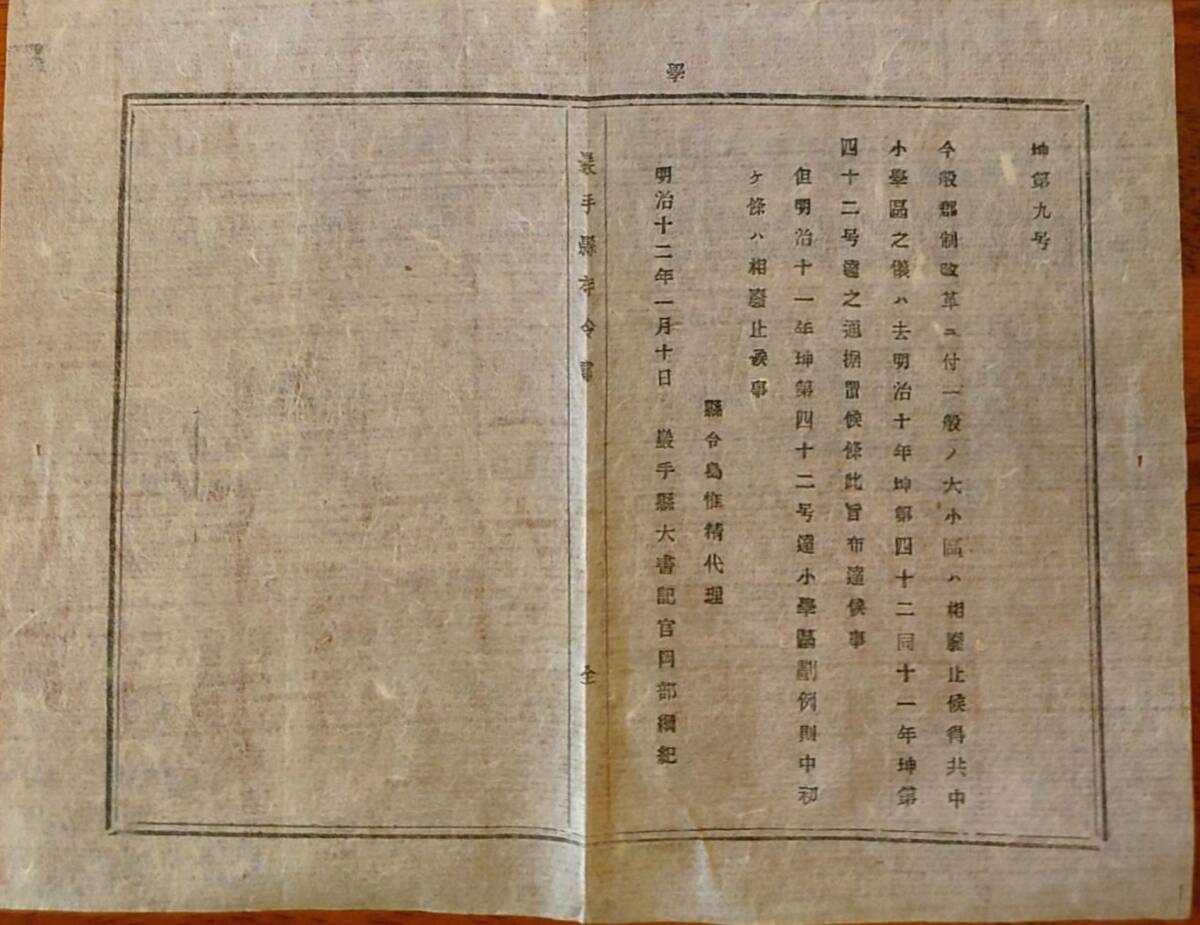 學
坤第九号
今般郡制改革ニ付一般ノ大小區ハ相廢止候得共中
小學區之儀ハ去明治十年坤第四十二同十一年坤第
四十二号達之通据置候條此旨布達候事
但明治十一年坤第四十二号達小學區劃例則中初
ケ條ハ相廢止候事
縣令島惟精代理
明治十二年一月十日 巖手縣大書記官岡部綱紀
巖手縣布令書 全